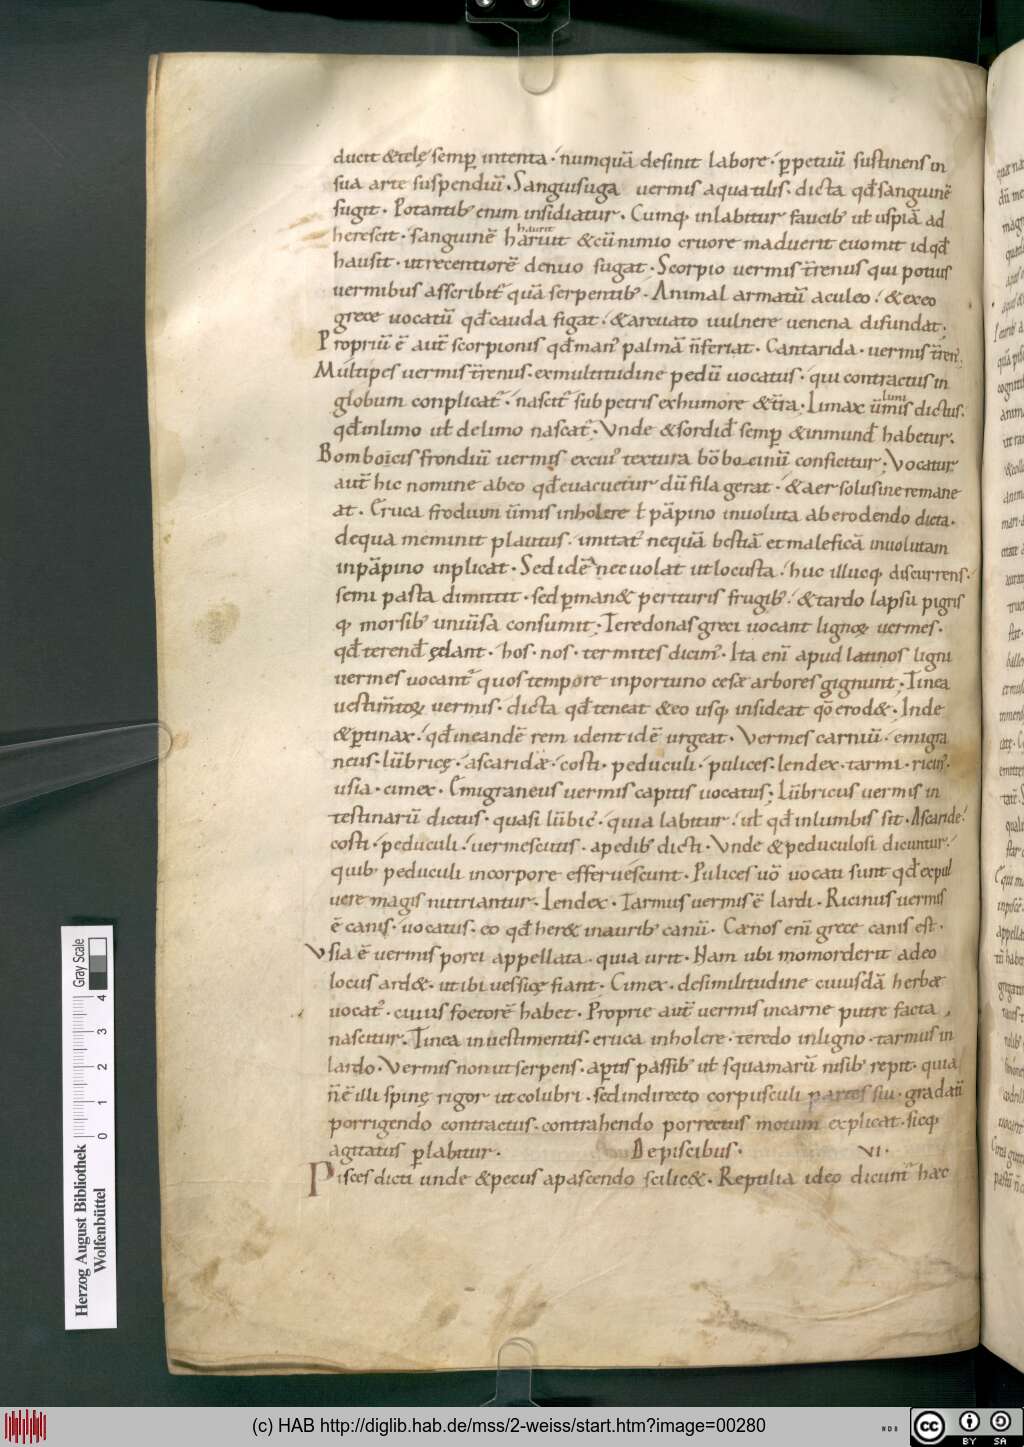 ducit & telę semp̄ intenta · numquā desinit labore · p̱petuū sustinens in
sua arte suspendiū · Sanguisuga uermis aquatilis · dicta qđ sanguinē
sugit · Potantib; enim insidiatur · Cumq; inlabitur faucib; uł uspiā ad
herescit · sanguinē haruit & cū nimio cruore maduerit euomit id qđ
haurit
hausit · ut recentiorē denuo sugat · Scorpio uermis t̄renus qui potius
uermibus asscribit̄ quā serpentib; · Animal armatū aculeo · & ex eo
grece uocatū qđ cauda figat · & arcuato uulnere uenena difundat ·
Propriū ē aut̄ scorpionis qđ man' palmā n̄ feriat · Cantarida · uermis t̄ren'
Multipes uermis t̄renus · ex multitudine pedū uocatus · qui contractus in
globum conplicat̄ · nascit̄ sub petris ex humore & t̄ra · Limax ūmis dictus ·
limi
qđ in limo uł de limo nascat̄ · Vnde & sordid̄ semp̄ & inmund̄ habetur ·
Bomboicis frondiū uermis ex cui' textura bōbocinū conficitur · Vocatur
aut̄ hic nomine ab eo qđ euacuetur dū fila gerat · & aer solus in e remane
at · Eruca frodium ūmis in holere ł pāpino inuoluta ab erodendo dicta ·
de qua meminit plautus · imitat̄ nequā bestiā et maleficā inuolutam
in pāpino inplicat · Sed idē nec uolat ut locusta · huc illucq; discurrens ·
semi pasta dimittit · sed p̱man& perituris frugib; · & tardo lapsu pigris
q; morsib; uniūsa consumit · Teredonas greci uocant lignoꝝ uermes ·
qđ terend̄ ędant · hos · nos · termites dicim' · Ita eni apud latinos ligni
uermes uocant̄ quos tempore inportuno cesæ arbores gignunt · Tinea
uestim̄toꝝ uermis · dicta qđ teneat & eo usq; insideat qō erod& · Inde
& p̱tinax · qđ in eandē rem identidē urgeat · Vermes carniū · emigra
neus · lūbricę · ascaridæ · costi · peduculi · pulices · lendex · tarmi · ricin' ·
usia · cimex · Emigraneus uermis capitis uocatus · Lūbricus uermis in
testinarū dictus · quasi lūbic̄ · quia labitur · uł qđ in lumbis sit · Ascaride ·
costi · peduculi · uermes cutis · a pedib; dicti · Vnde & peduculosi dicuntur ·
quib; peduculi in corpore efferuescunt · Pulices uō uocati sunt qđ ex pul
uere magis nutriantur · Lendex · Tarmus uermis ē lardi · Ricinus uermis
ē canis · uocatus · eo qđ her& in aurib; canū · Cænos eni grece canis est ·
Vsia ē uermis porci appellata · quia urit · Nam ubi momorderit adeo
locus ard& · ut ibi uessicę fiant · Cimex · de similitudine cuiusdā herbæ
uocat' · cuius foetorē habet · Proprie aut̄ uermis in carne putre facta ·
nascitur · Tinea in uestimentis · eruca in holere · teredo in ligno · tarmus in
lardo · Vermis non ut serpens · ap̱tis passib; uł squamarū nisib; repit · quia
n̄ ē illi spinę rigor ut colubri · sed in directo corpusculi partes siu · gradatī
porrigendo contractus · contrahendo porrectus motum explicat · sicq;
agitatus p̱labitur · De piscibus · VI ·
Pisces dicti unde & pecus a pascendo scilic& · Reptilia ideo dicunt̄ haec
Herzog August Bibliothek
Wolfenbüttel
0 1 2 3 4
Gray Scale
(c) HAB http://diglib.hab.de/mss/2-weiss/start.htm?image=00280
cc BY SA